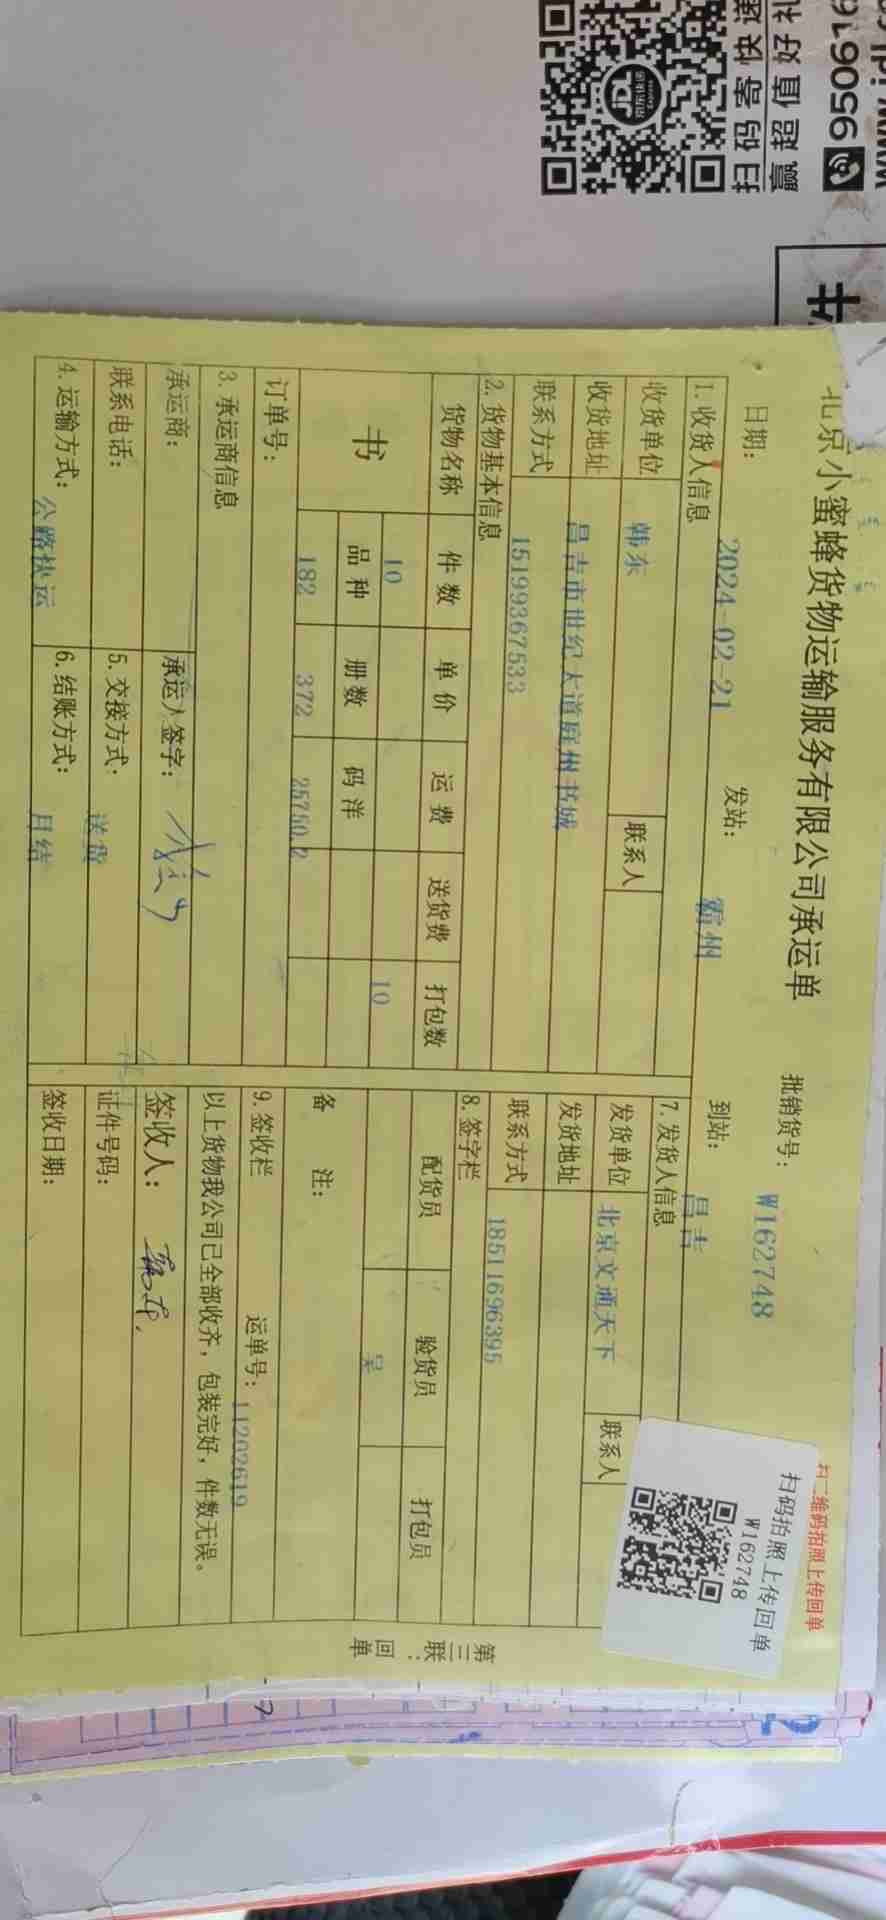 扫码寄快递
赢超值好礼
950616
JDL
件
北京小蜜蜂货物运输服务有限公司承运单
扫二维码拍照上传回单
扫码拍照上传回单
W162748
批销货号: W162748
日期: 2024-02-21 发站: 霸州 到站: 昌吉
1. 收货人信息
收货单位 韩东 联系人
收货地址 昌吉市世纪大道庭州书城
联系方式 15199367533
2. 货物基本信息
货物名称 件数 单价 运费 送货费 打包数
书 10 10
品种 册数 码洋
182 372 25750.2
订单号:
3. 承运商信息
承运商: 承运人签字:
联系电话: 5. 交接方式: 送货
4. 运输方式: 公路快运 6. 结账方式: 月结
7. 发货人信息
发货单位 北京文通天下 联系人
发货地址
联系方式 18511696395
8. 签字栏
配货员 验货员 打包员
吴
备 注:
9. 签收栏 运单号: 11202619
以上货物我公司已全部收齐，包装完好，件数无误。
签收人:
证件号码:
签收日期:
第三联:回单